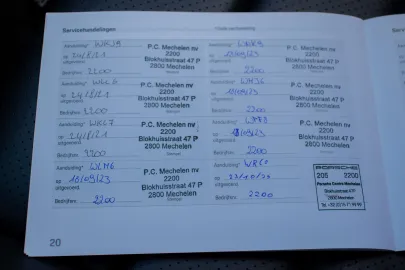 Servicehandelingen
Aanduiding* WKJ9
op 24/8/21
uitgevoerd.
P.C. Mechelen nv
2200
Blokhuisstraat 47 P
2800 Mechelen
Bedrijfsnr. 2200
Aanduiding*
op 24/8/21
uitgevoerd.
P.C. Mechelen nv
2200
Blokhuisstraat 47 P
2800 Mechelen
Bedrijfsnr. 2200
Aanduiding* WKC7
op 24/8/21
uitgevoerd.
P.C. Mechelen nv
2200
Blokhuisstraat 47 P
2800 Mechelen
Bedrijfsnr. 2200
Aanduiding* WLM6
op 18/09/23
uitgevoerd.
P.C. Mechelen nv
2200
Blokhuisstraat 47 P
2800 Mechelen
Bedrijfsnr. 2200
Aanduiding*
op /09/23
uitgevoerd.
P.C. Mechelen nv
2200
Blokhuisstraat 47 P
2800 Mechelen
Bedrijfsnr. 2200
Aanduiding*
op 18/09/23
uitgevoerd.
P.C. Mechelen nv
2200
Blokhuisstraat 47 P
2800 Mechelen
Bedrijfsnr. 2200
Aanduiding*
op 18/09/23
uitgevoerd.
P.C. Mechelen nv
2200
Blokhuisstraat 47 P
2800 Mechelen
Bedrijfsnr. 2200
Aanduiding*
op 23/10/24
uitgevoerd.
Bedrijfsnr. 2200
PORSCHE
205 2200
Porsche Centre Mechelen
Blokhuisstraat 47P
2800 Mechelen
20